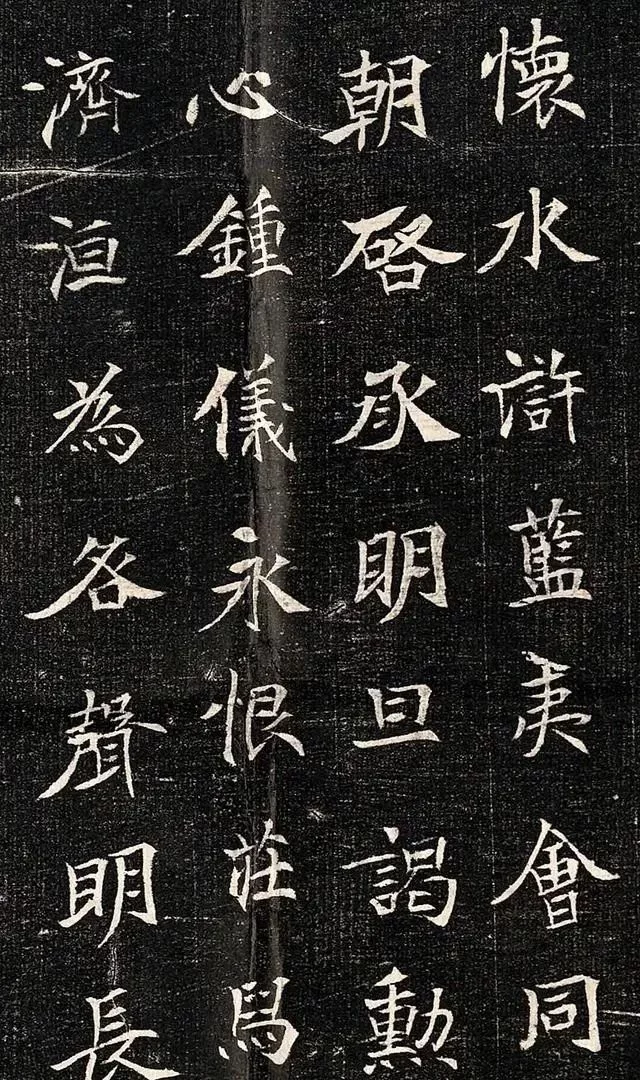 懷水滸藍夷會同
朝啓承明旦謁勳
心鍾儀永恨莊舄
濟洹為各聲明長